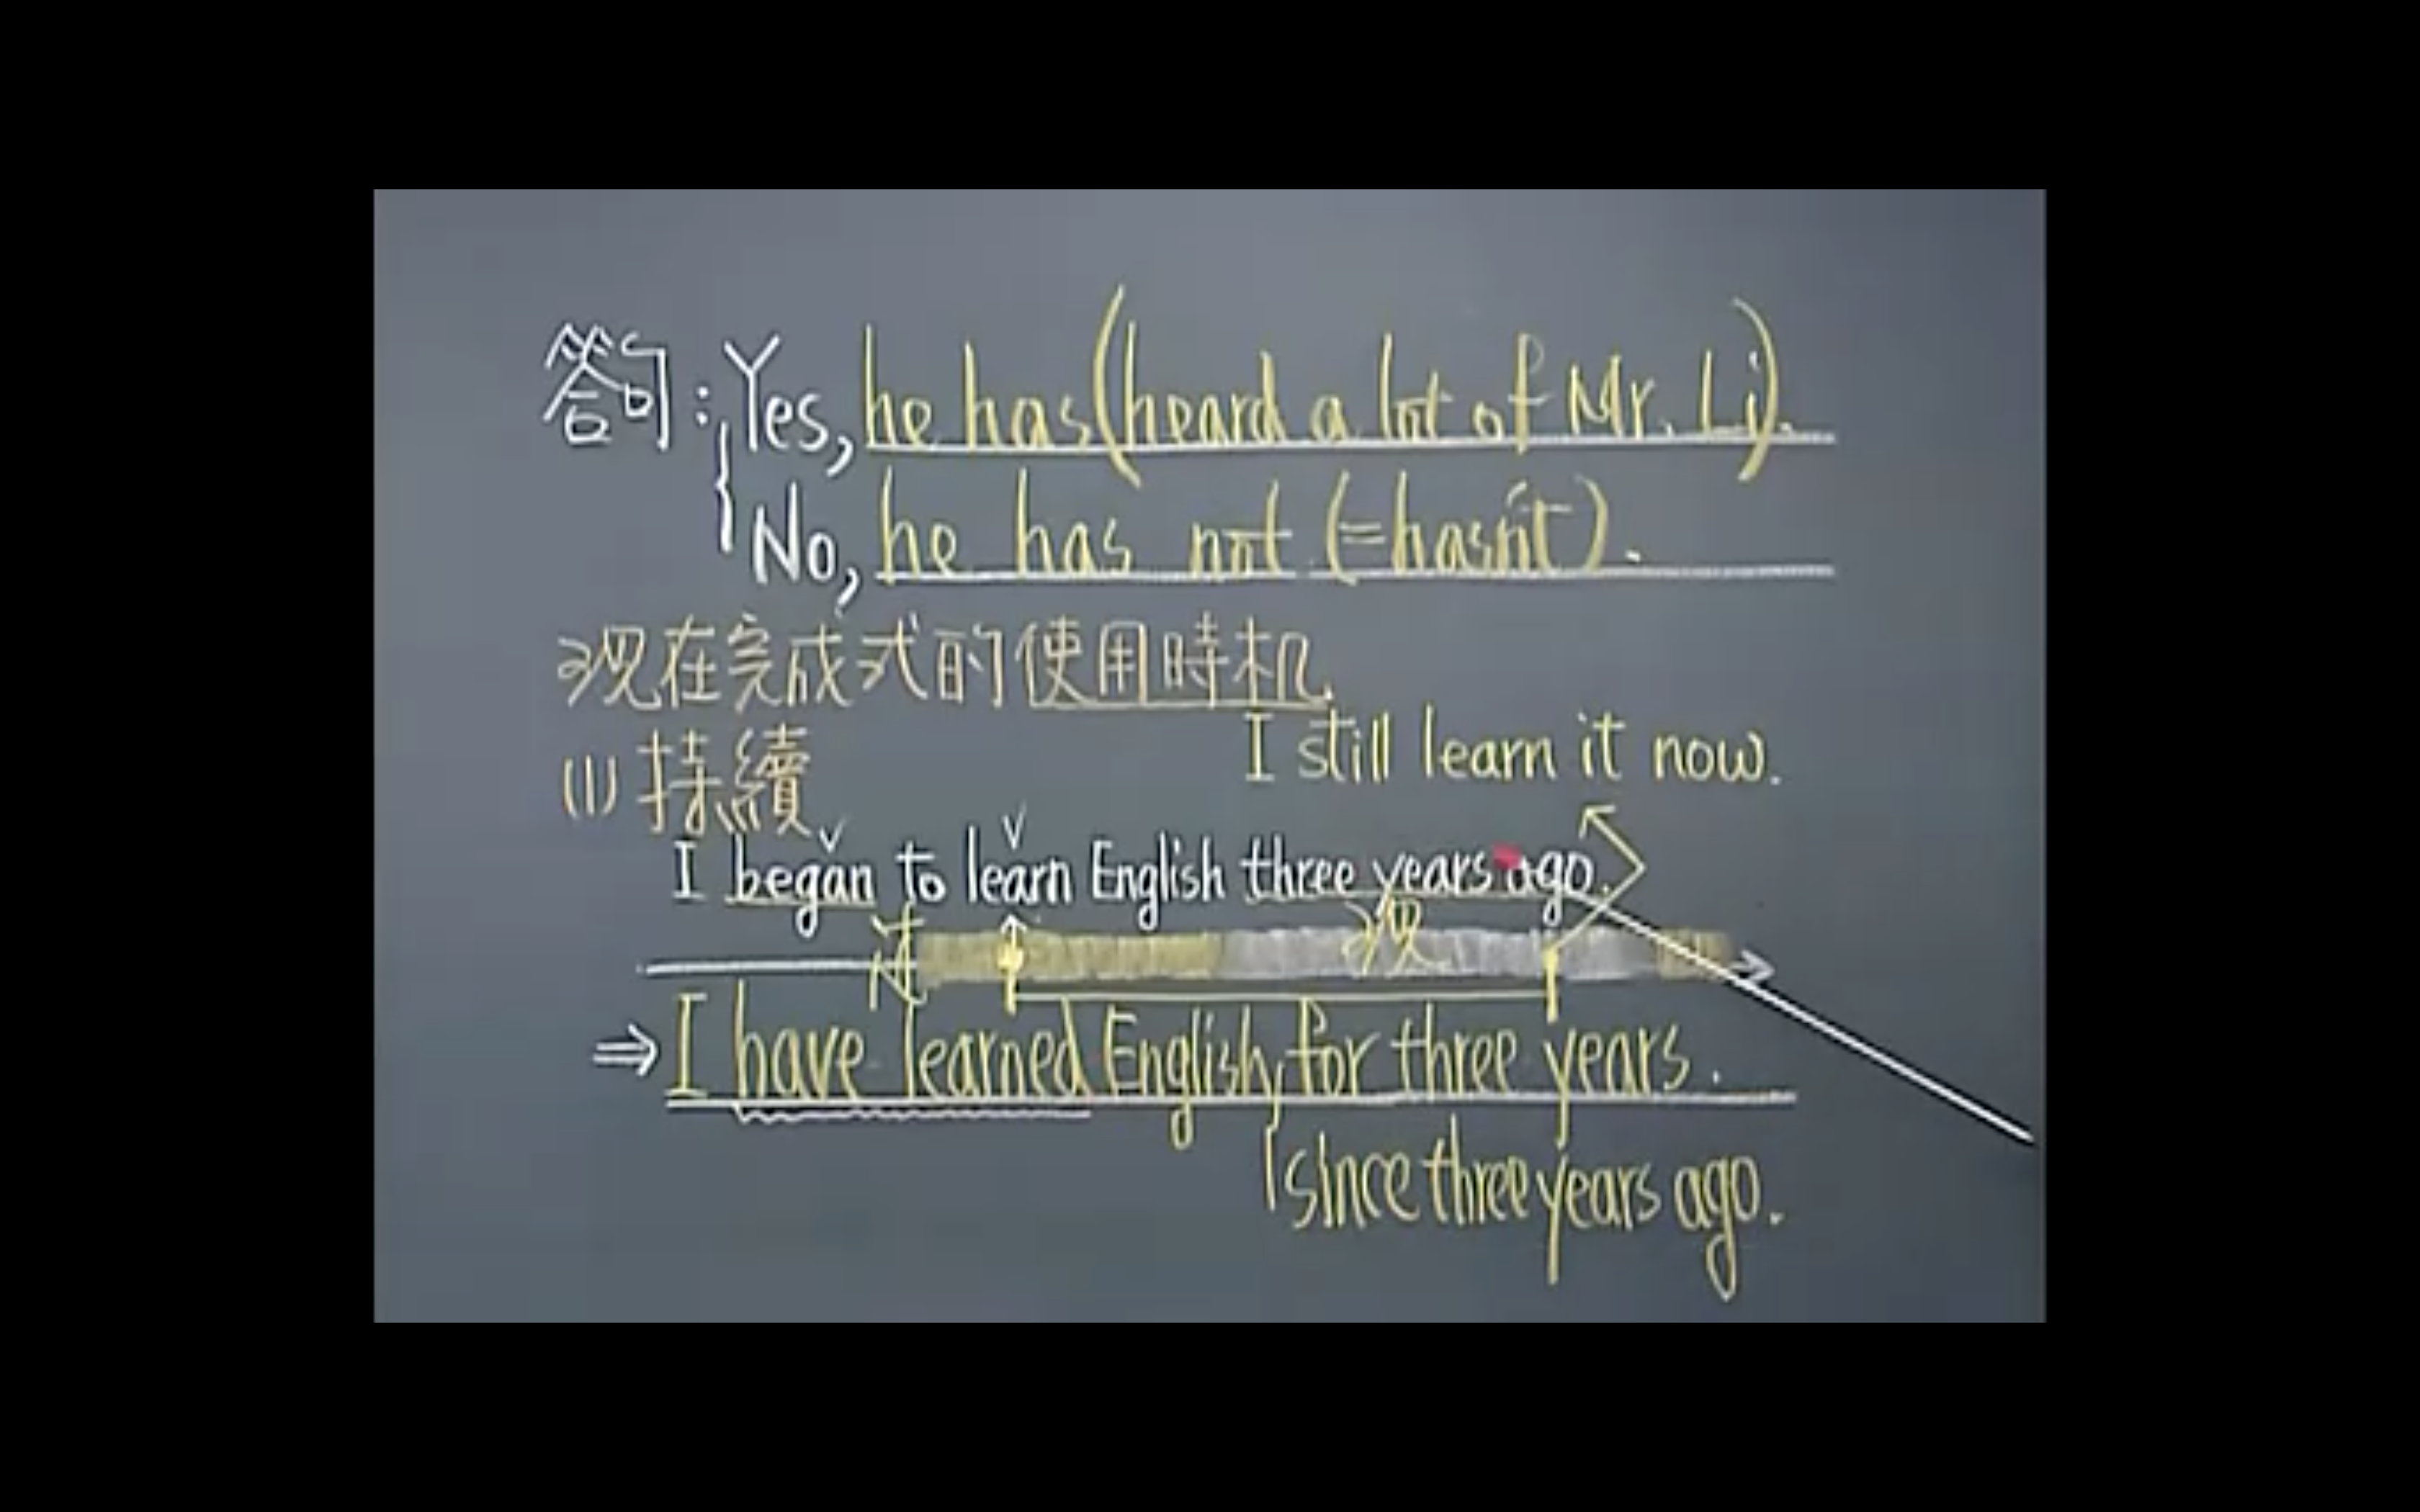 答句:Yes, he has (heard a lot of Mr. Li).
No, he has not (=hasn't).
现在完成式的使用時机
(1)持續
I still learn it now.
I began to learn English three years ago.
过 现
⇒ I have learned English for three years.
since three years ago.